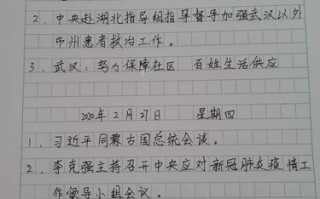 2. 中央赴湖北指导组指导督导加强武汉以外
市州患者救治工作。
3. 武汉：努力保障社区 百姓生活供应
2020年2月27日 星期四
1. 习近平同蒙古国总统会谈。
2. 李克强主持召开中央应对新冠肺炎疫情工
作领导小组会议。